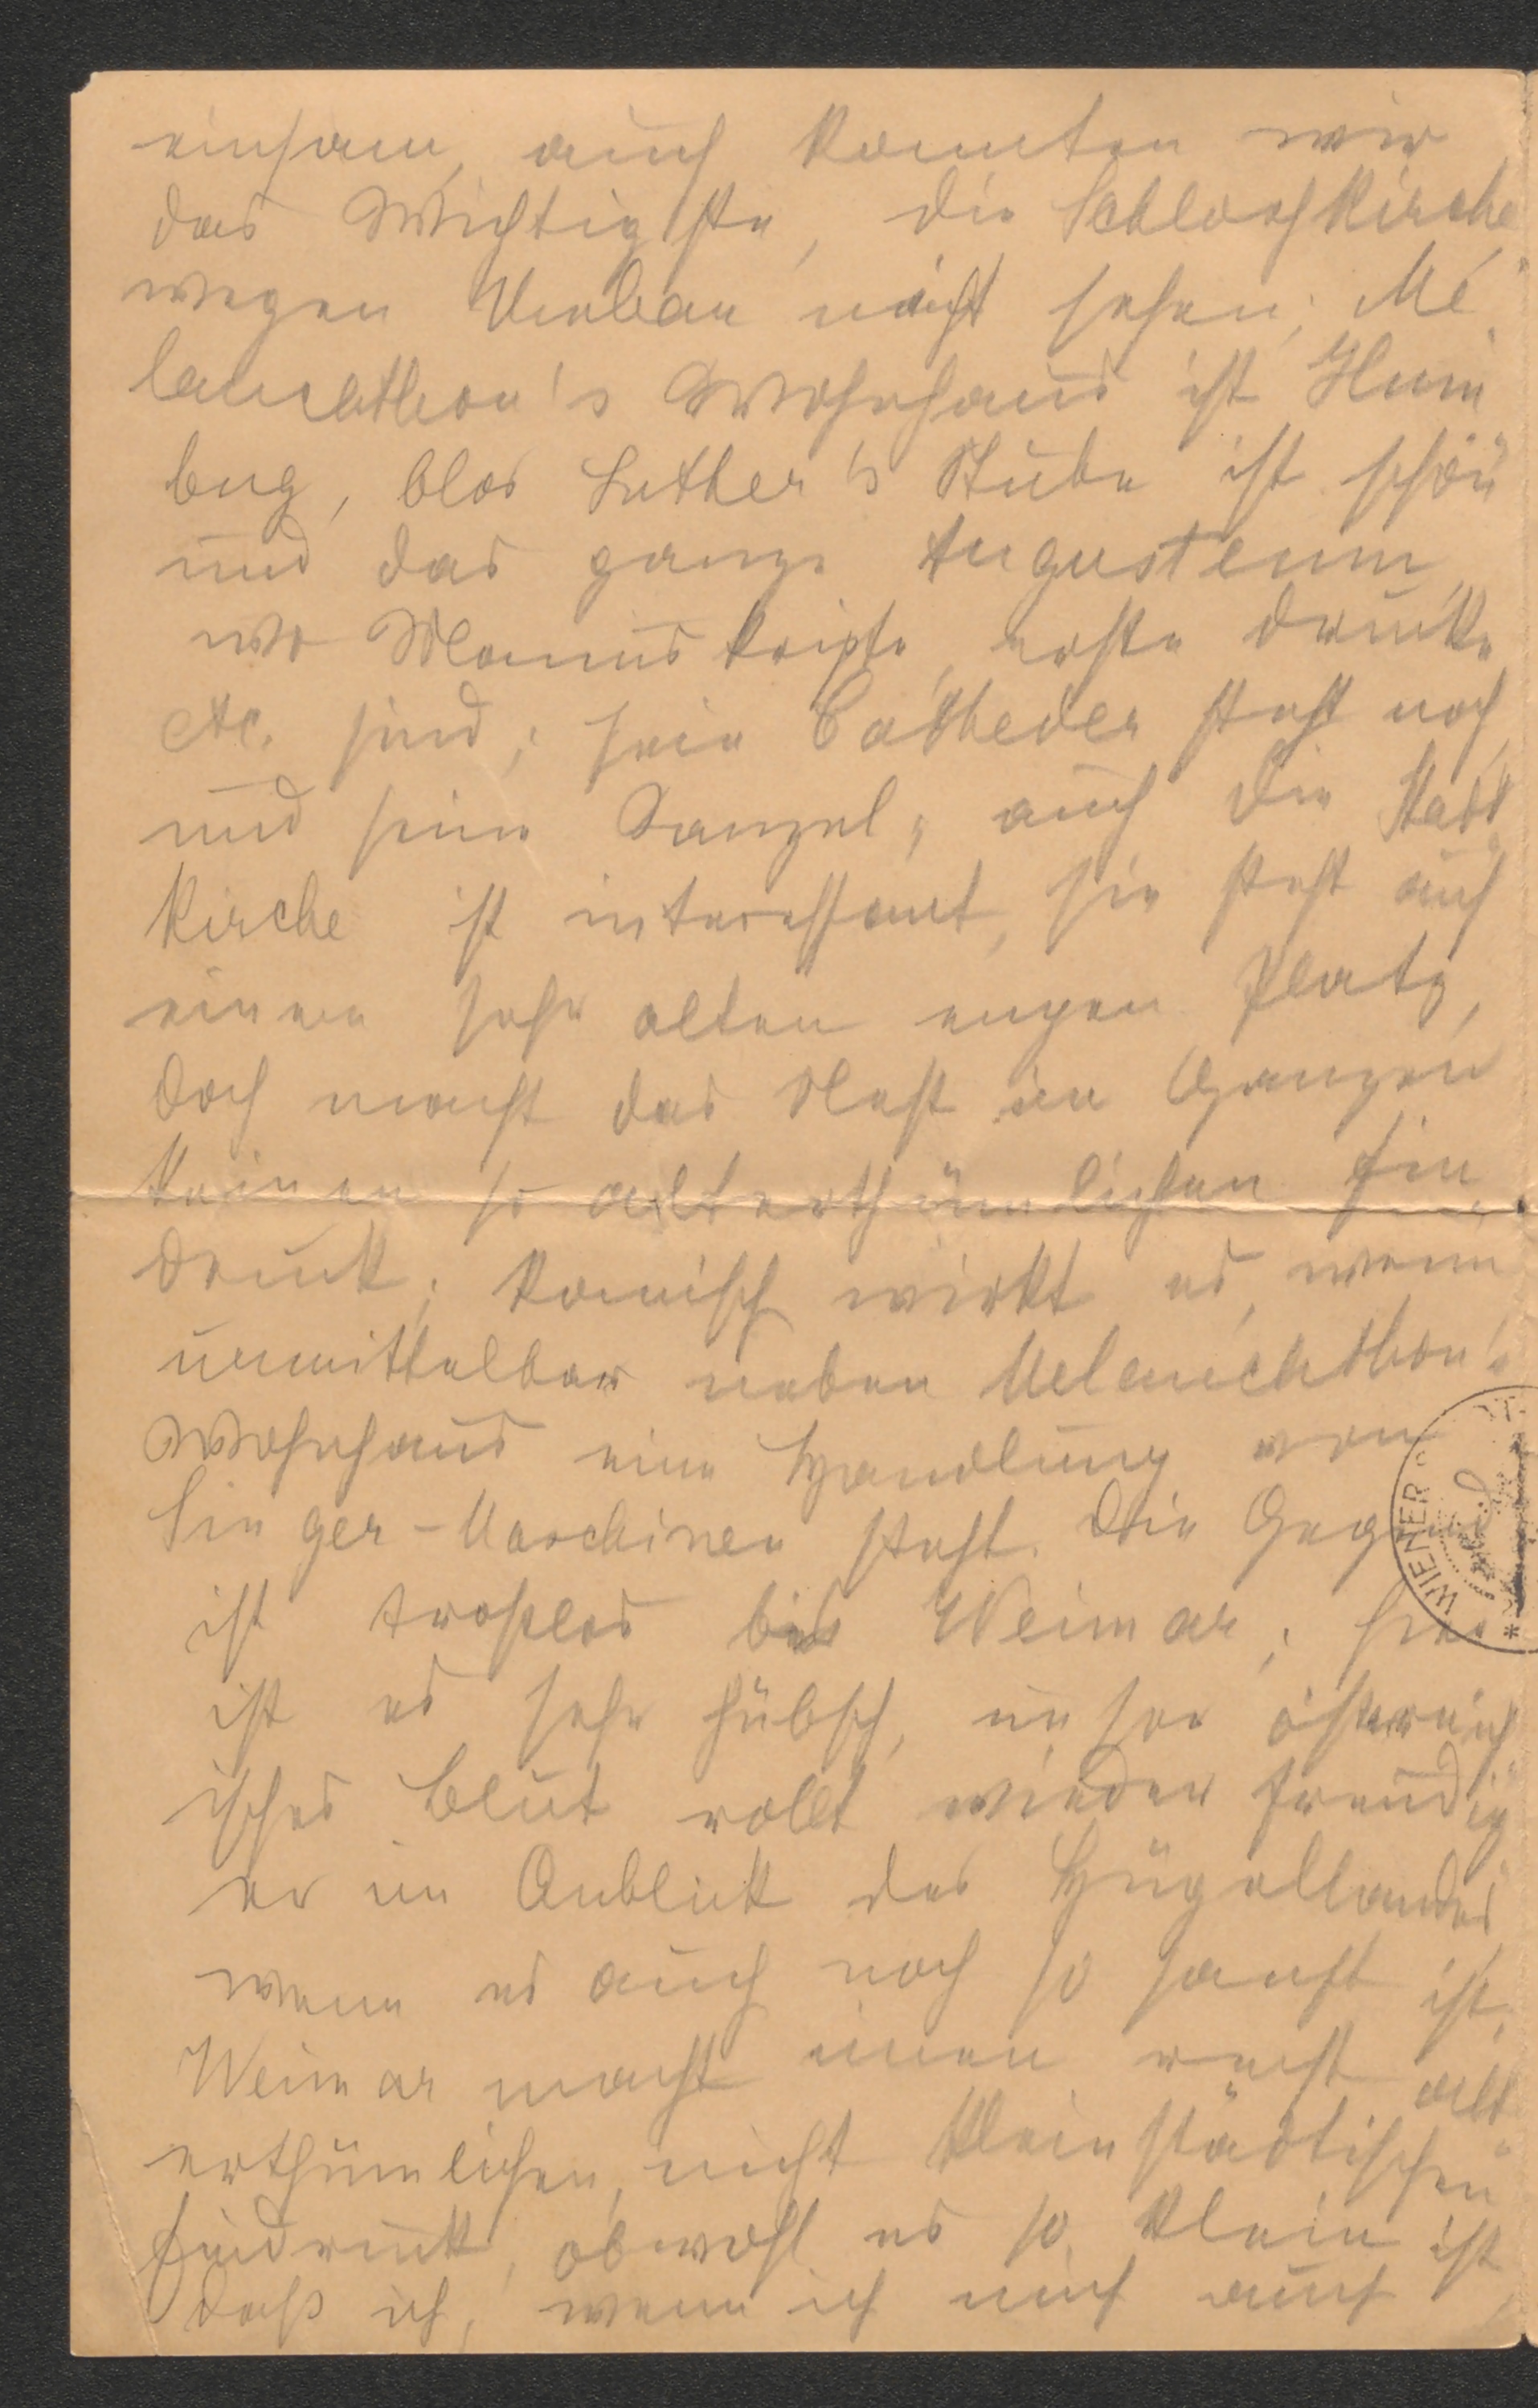 einsam, auch konnten wir
das Wichtigste, die Schlosskirche
wegen Umbau nicht sehen; Me-
lanchthon's Wohnhaus ist Hum-
bug, blos Luther's Stube ist schön
und das ganze Augusteum,
wo Manuskripte, erste Drucke
etc. sind; sein Catheder steht noch
und seine Canzel; auch die Stadt-
kirche ist interessant, sie steht auf
einem sehr alten engen Platz,
doch macht das Nest im Ganzen
keinen so alterthümlichen Ein-
druck; komisch wirkt es, wenn
unmittelbar neben Melanchthon's
Wohnhaus eine Handlung von
Singer-Maschinen steht. Die Gegend
ist trostlos bis Weimar; hier
ist es sehr hübsch, unser österreich-
isches Blut rollt wieder freudig-
er im Anblick des Hügellandes
wenn es auch noch so sanft ist.
Weimar macht einen recht alt-
erthümlichen, nicht kleinstädtischen
Eindruck, obwohl es so klein ist,
daß ich, wenn ich mich auch
WIENER